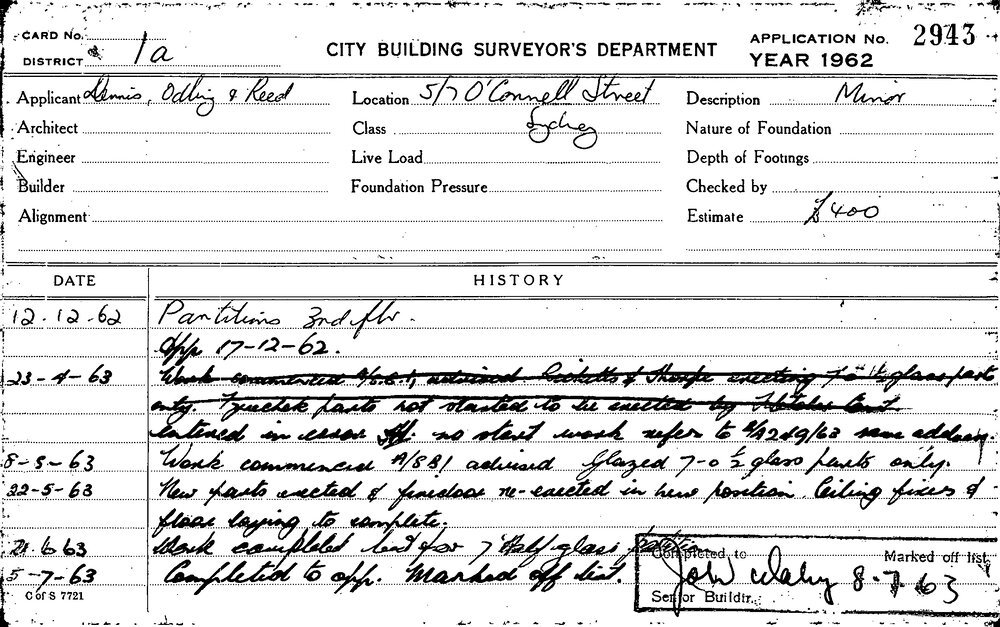 CARD No.
DISTRICT 1a
CITY BUILDING SURVEYOR'S DEPARTMENT
APPLICATION No. 2943
YEAR 1962
Applicant Dennis, Odling & Reed
Location 5/7 O'Connell Street
Description Minor
Architect
Class Sydney
Nature of Foundation
Engineer
Live Load
Depth of Footings
Builder
Foundation Pressure
Checked by
Alignment
Estimate £400
DATE HISTORY
12.12.62 Partitions 3rd flr.
App 17-12-62.
23-4-63 Work commenced advised & Thorpe erecting 7'0 1½ glass parts
only. parts not started to be erected by
entered in error no start work refer to same address.
8-5-63 Work commenced A/SB1 advised Glazed 7-0 ½ glass parts only.
22-5-63 New parts erected & firedoor re-erected in new position. Ceiling fixes &
floor laying to complete.
21.6.63 Work completed for 7' Half glass
5-7-63 Completed to app. Marked off list.
Completed to
Marked off list
8-7-63
Senior Buildr.
C of S 7721